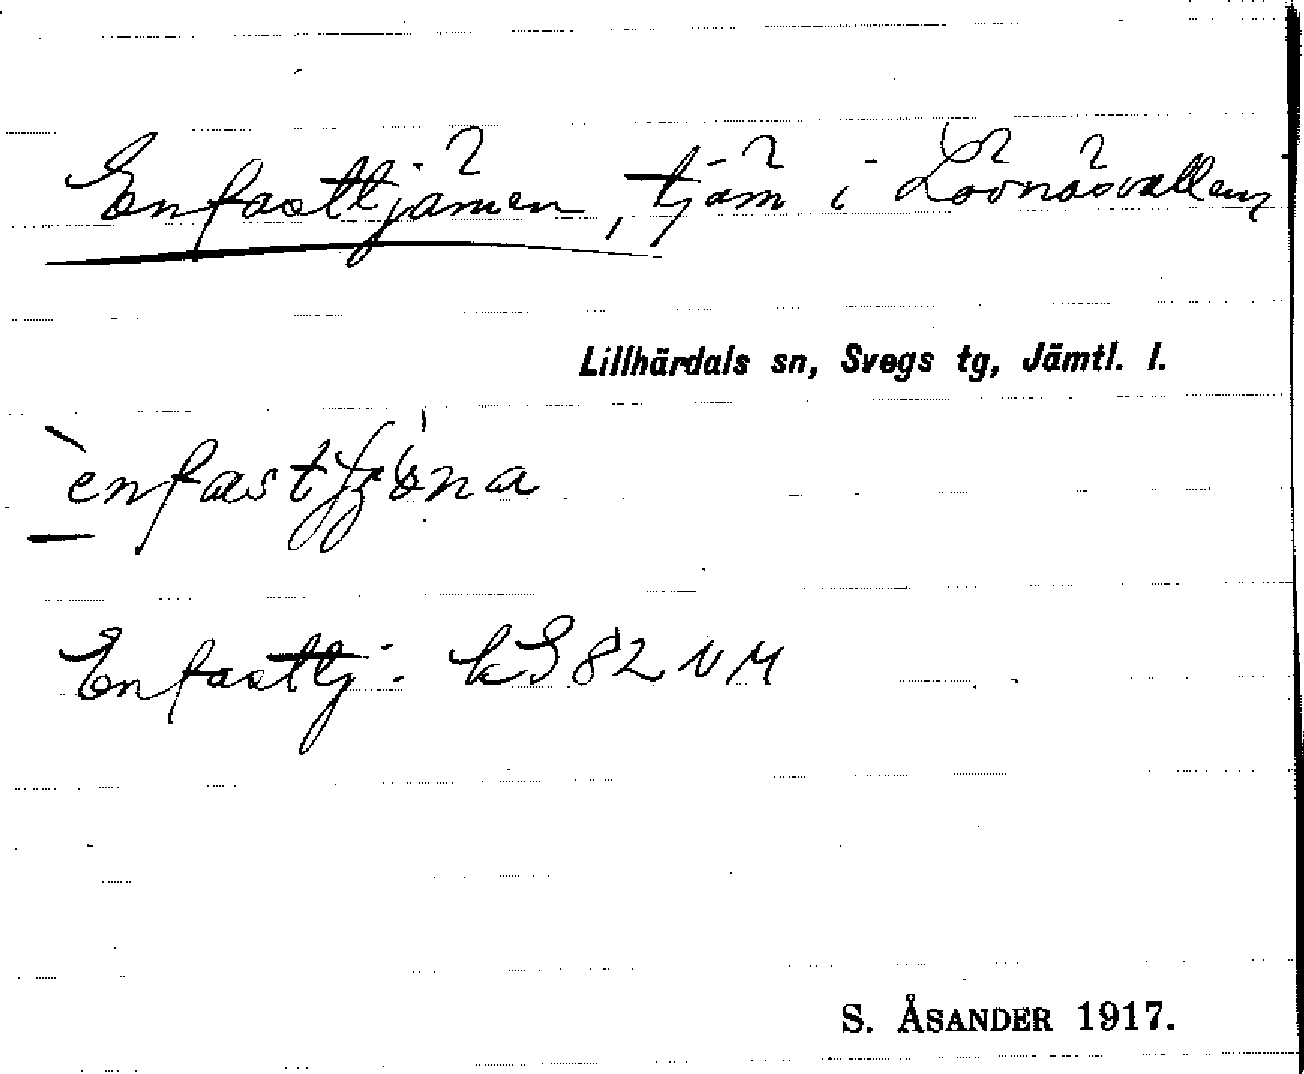 Enfasttjärnen, tjärn i Lövnäsvallen
Lillhärdals sn, Svegs tg, Jämtl. l.
Enfasttj: kS82NM
S. ÅSANDER 1917.